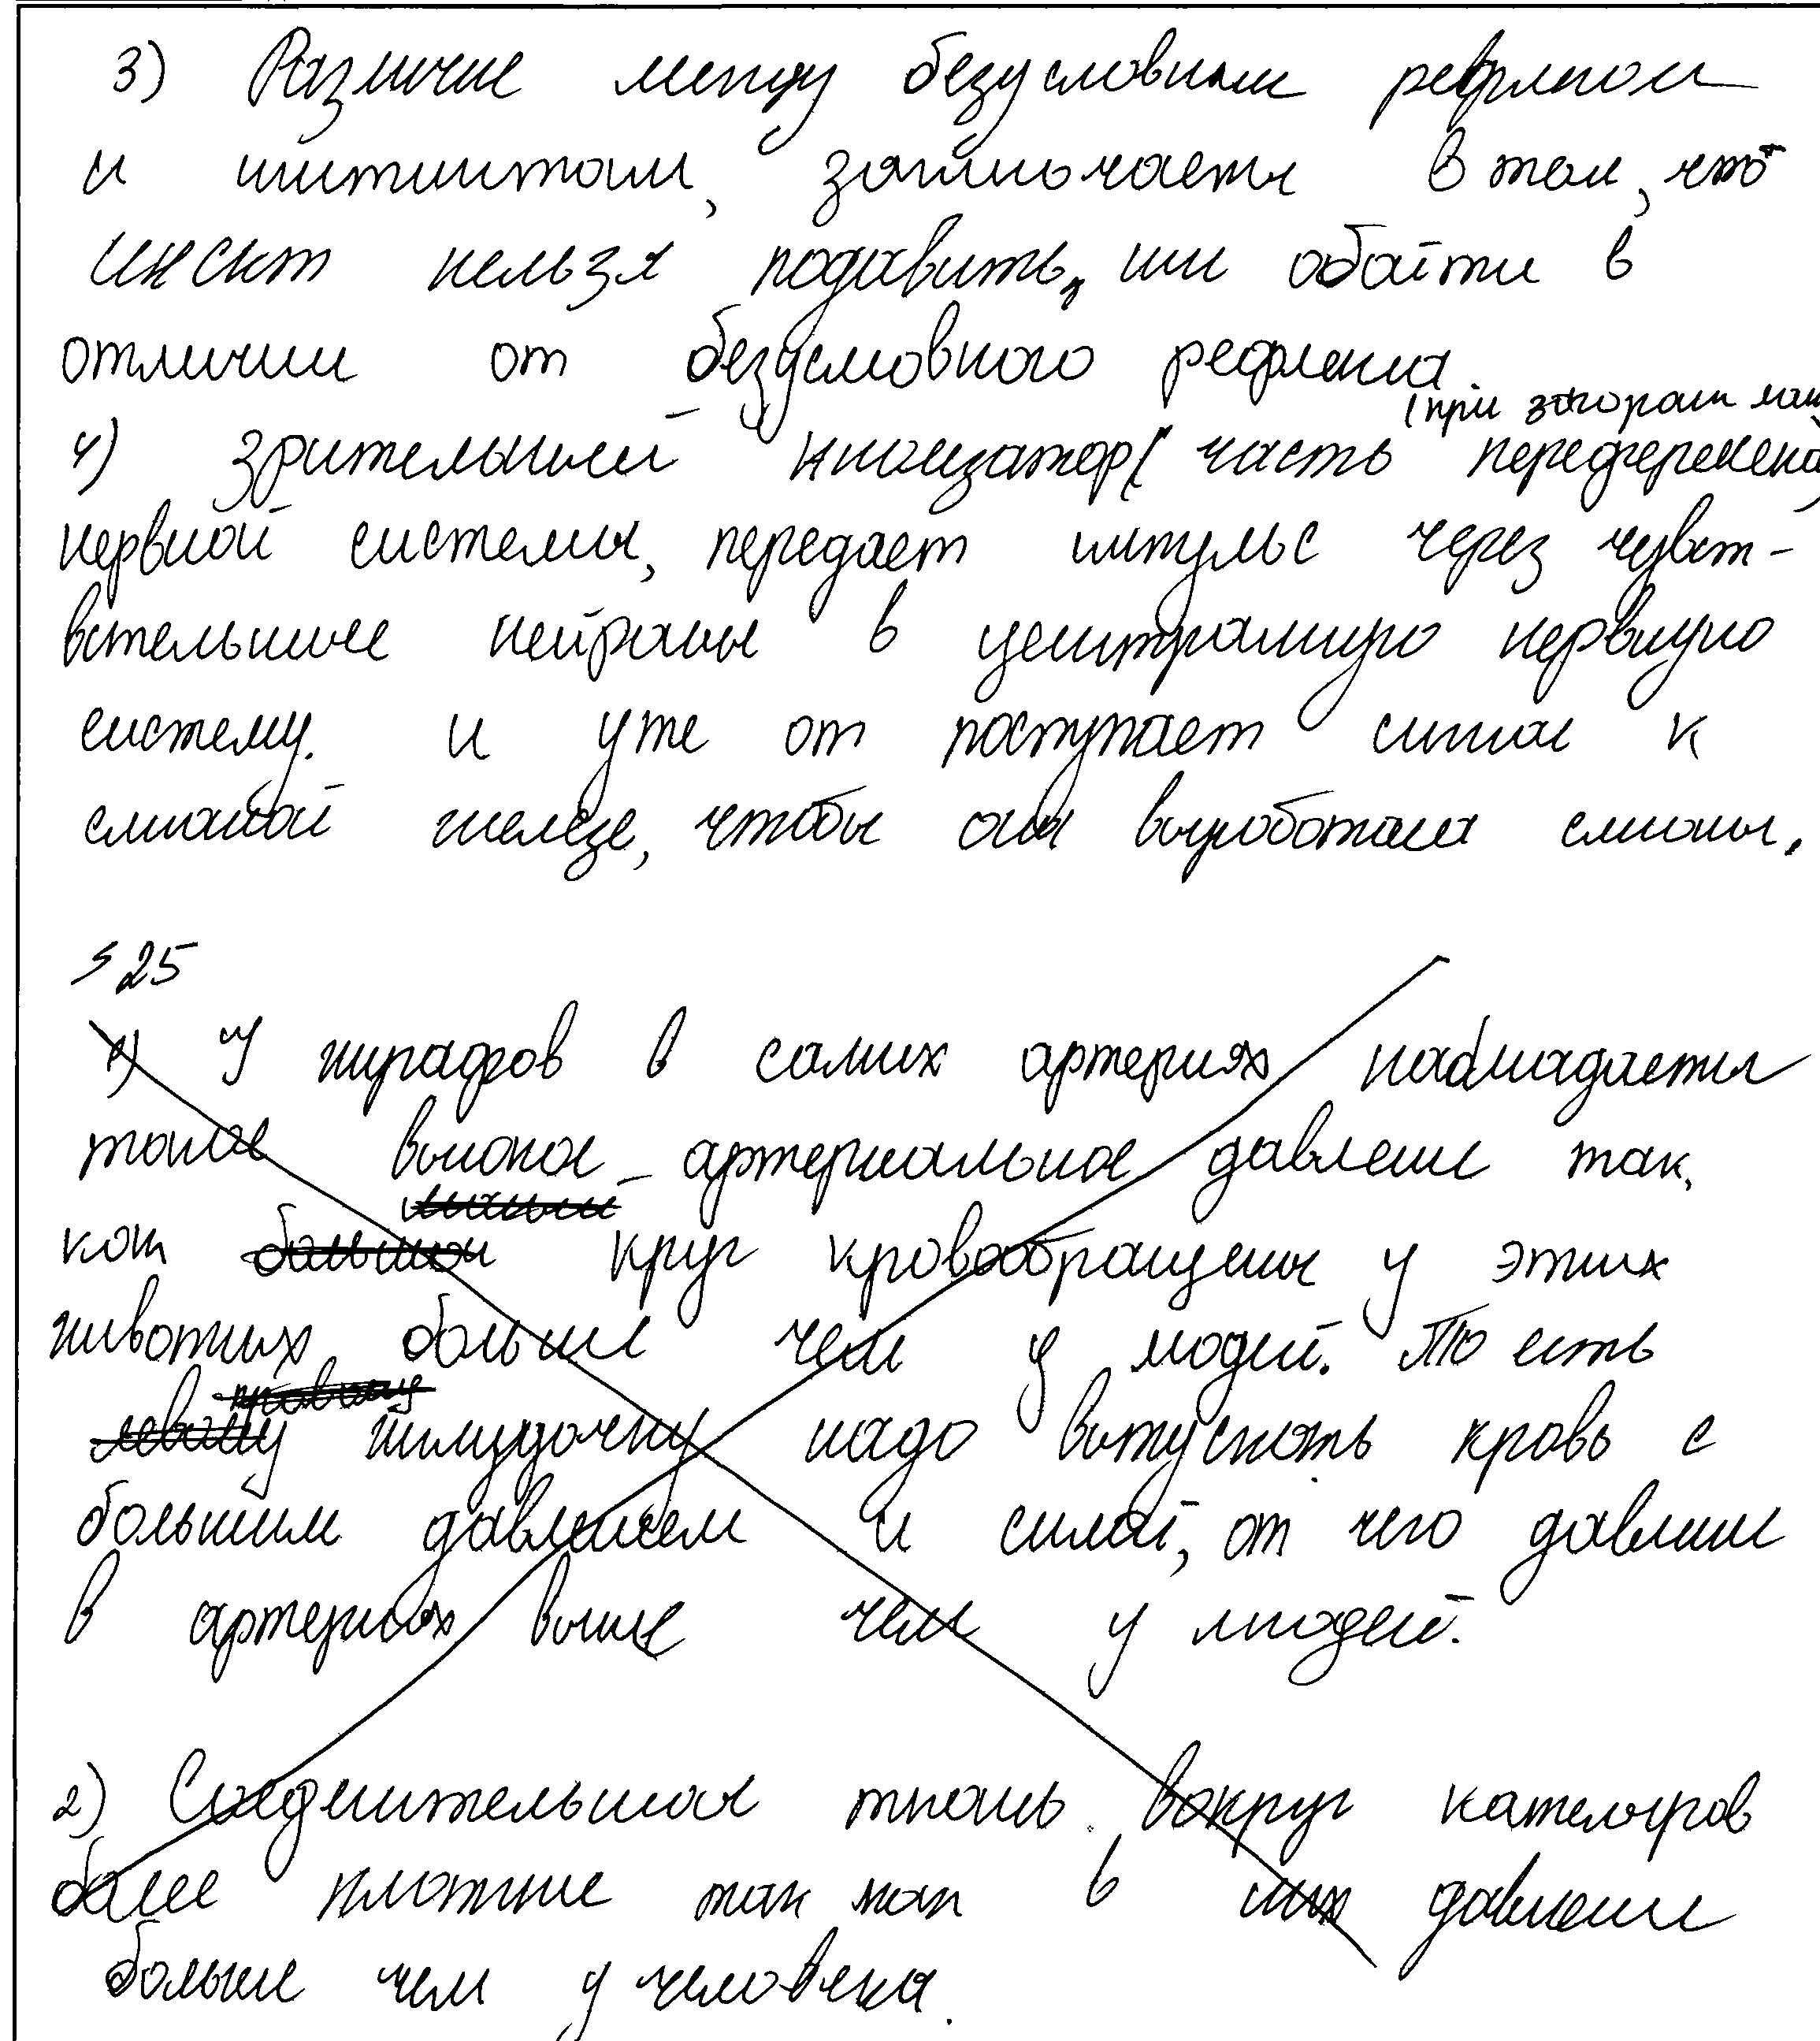 3) Различие между безусловным рефлексом
и инстинктом, заключается в том, что
инскт нельзя подавить, или обойти в
отличии от безусловного рефлекса.
(при загорании лам
4) Зрительный анализатор ( часть переферекена
нервной системы, передает импульс через чувст-
вительные нейроны в центральную нервную
систему. и уже от поступает сигнал к
слюной железе, чтобы она выработала слюны.
25
1) У жирафов в самих артериях наблюдается
такое высокое артериальное давление так,
как большой круг кровообращения у этих
животных больше чем у людей. То есть
правому
левому желудочку надо выпускать кровь с
большим давлением и силой, от чего давление
в артериях выше чем у людей.
2) Соединительная ткань вокруг капеляров
более плотние так как в них давление
больше чем у человека.